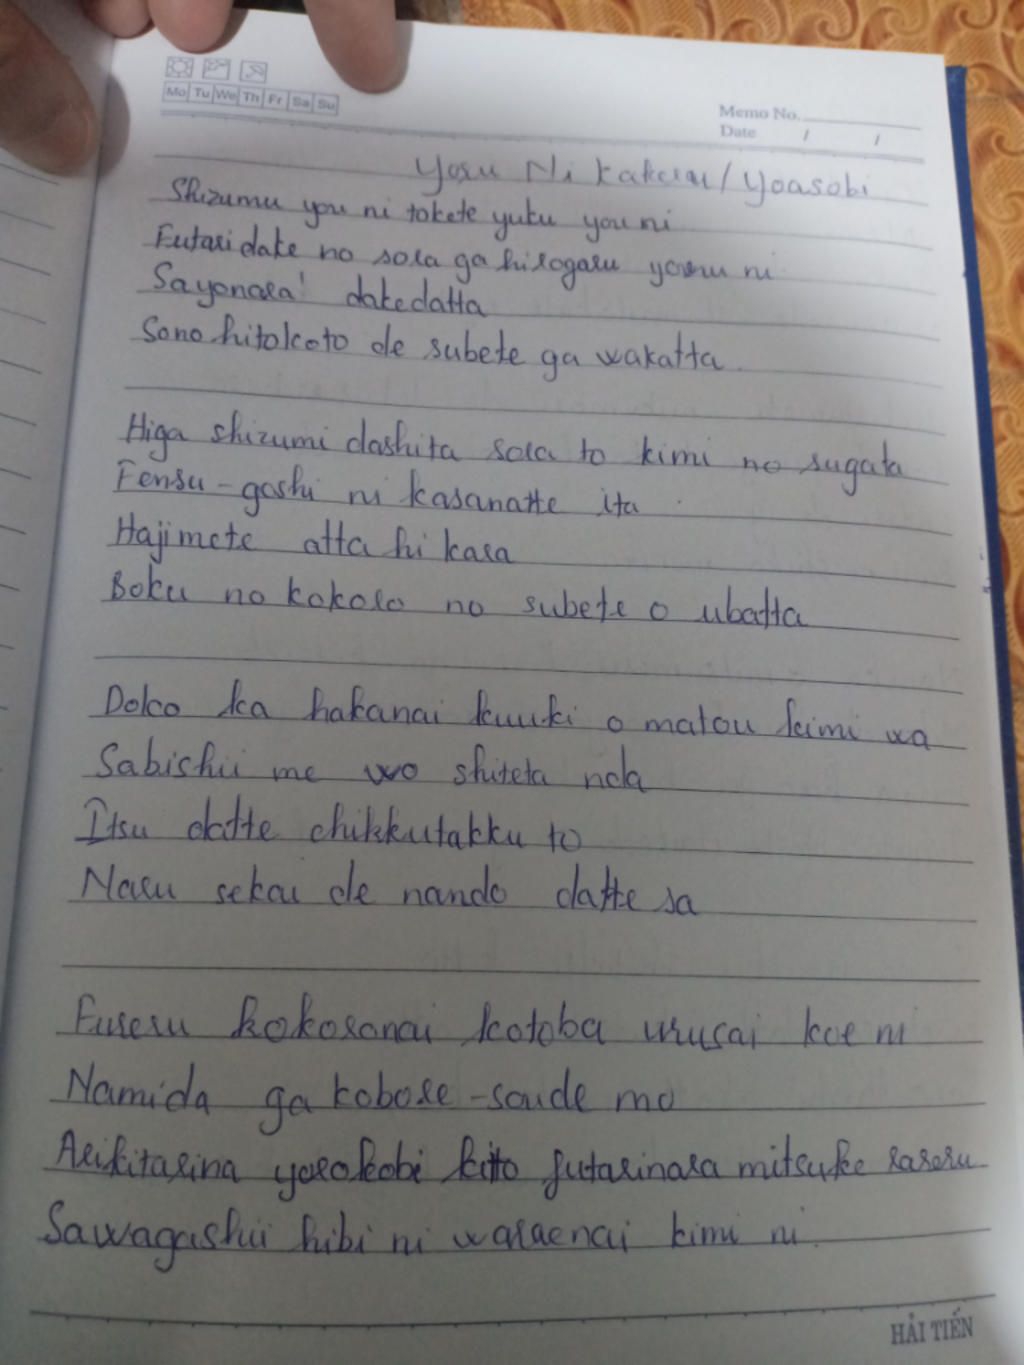 Mo Tu We Th Fr Sa Su
Memo No.
Date / /
Yoru Ni kakeru / Yoasobi
Shizumu you ni tokete yuku you ni
Futari dake no sora ga hirogaru yoru ni
Sayonara' dakedatta
Sono hitokoto de subete ga wakatta
Higa shizumi dashita sora to kimi no sugata
Fensu-goshi ni kasanatte ita
Hajimete atta hi kara
Boku no kokoro no subete o ubatta
Doko ka hakanai kuuki o matou kimi wa
Sabishii me wo shiteta nda
Itsu datte chikkutakku to
Naru sekai de nando datte sa
Fureru kokoronai kotoba urusai koe ni
Namida ga kobore-soude mo
Arikitarina yorokobi kitto futarinara mitsuke rareru
Sawagashii hibi ni waraenai kimi ni
HẢI TIẾN